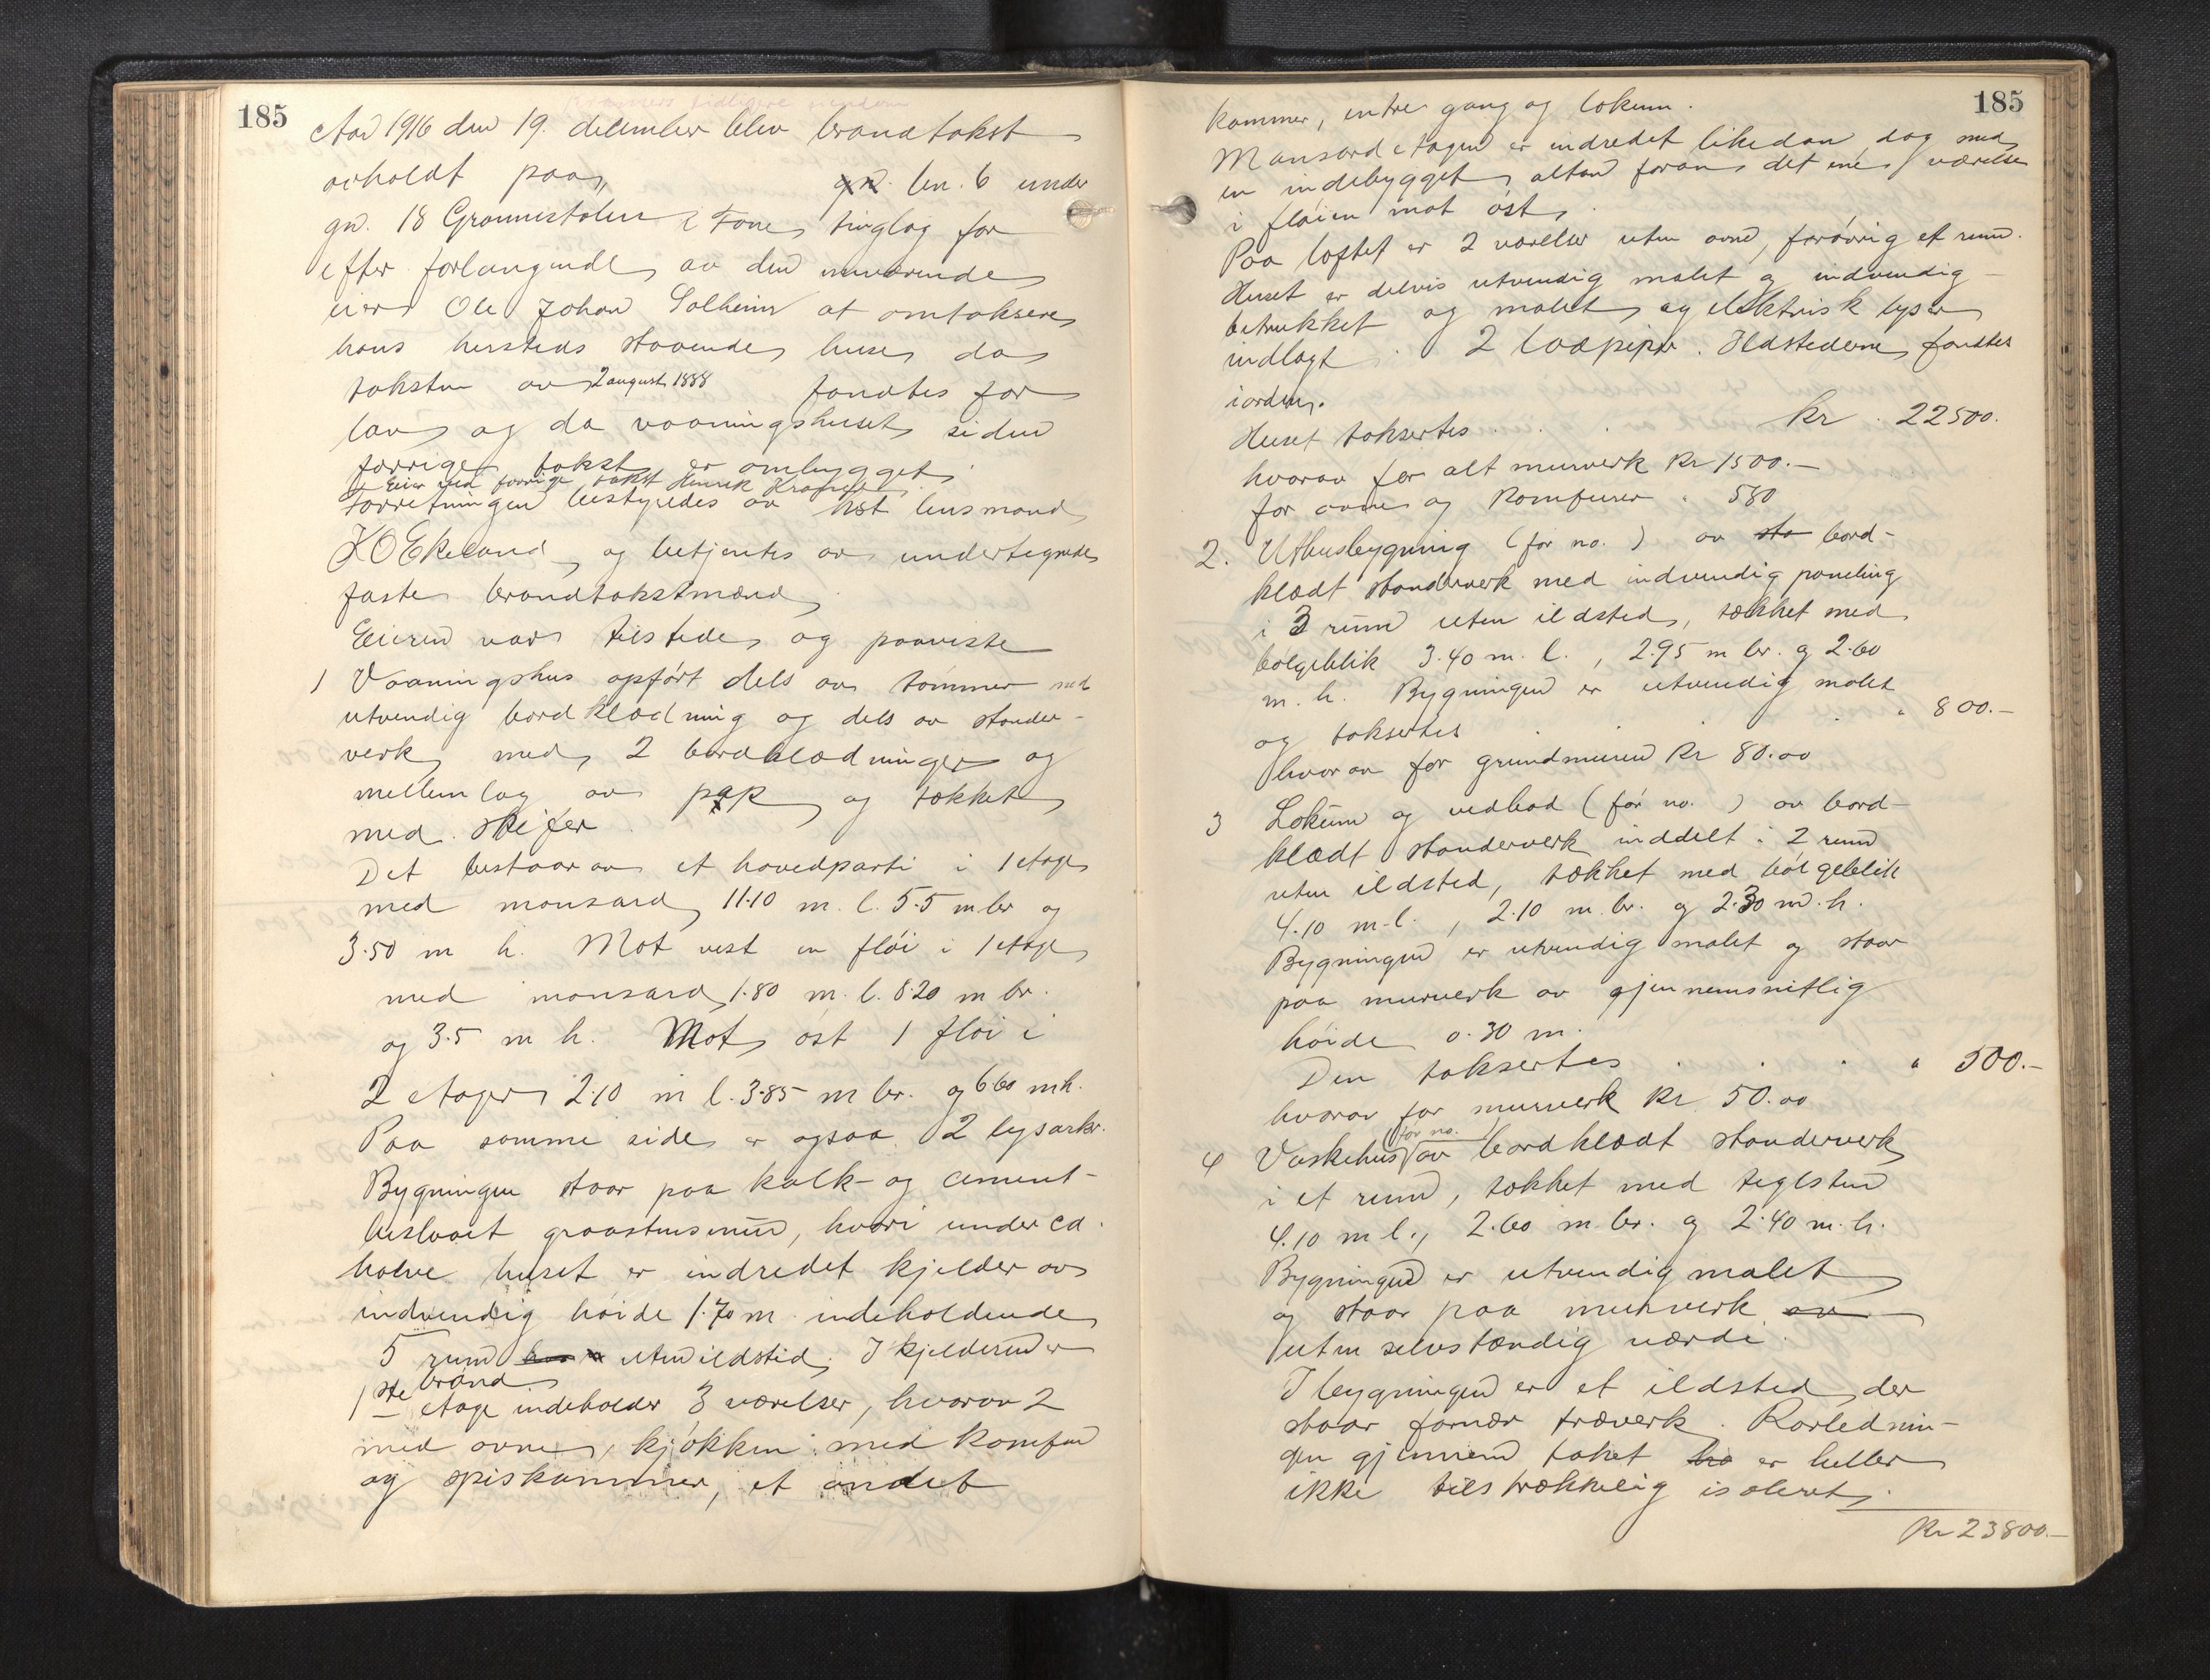 185
Kramers tidligere eiendom
Aar 1916 den 19. december blev brandtakst
avholdt paa, gn. bn. 6 under
gn. 18 Grannestølen i Fane tinglag for
efter forlangende av den nuværende
eier Ole Johan Solheim at omtaksere
hans hersteds staaende huse, da
taksten av 2 august 1888 fandtes for
lav og da vaaningshuset siden
forrige takst er ombygget.
Eier ved forrige takst Henrik Kramer.
Forretningen bestyredes av kst lensmand
K O Ekeland og betjentes av undertegnede
faste brandtakstmænd
Eieren var tilstede og paaviste
1 Vaaningshus opført dels av tømmer med
utvendig bordklædning og dels av stender-
verk med 2 bordklædninger og
mellemlag av pap og tækket
med skifer.
Det bestaar av et hovedparti i 1 etage
med mansard, 11.10 m. l. 5.5 m br og
3.50 m h. Mot vest en fløi i 1 etage
med mansard, 1.80 m. l. 8.20 m br.
og 3.5 m h. Mot øst 1 fløi i
2 etager 2.10 m l. 3.85 m br. og 6.60 m h.
Paa samme side er ogsaa 2 lysarker.
Bygningen staar paa kalk- og cement-
beslaaet graastensmur, hvori under ca.
halve huset er indredet kjelder av
indvendig høide 1.70 m. indeholdende
5 rum uten ildsted. I kjelderen er
brønd
1ste etage indeholder 3 værelser, hvorav 2
med ovne, kjøkken med komfur
og spiskammer, et andet
185
kammer, entre gang og lokum.
Mansardetagen er indredet likedan dog med
en indebygget altan foran det ene værelse
i fløien mot øst.
Paa loftet er 2 værelser uten ovn, forøvrig et rum.
Huset er delvis utvendig malet og indvendig
betrukket og malet og elektrisk lys er
indlagt. 2 løepiper. Ildstederne fandtes
iorden.
Huset takseres . . . kr. 22500.
hvorav for alt murverk Kr 1500.—
for ovne og komfurer " 580
2. Uthusbygning (før no. ) av sta bord-
klædt stenderverk med indvendig paneling
i 3 rum uten ildsted, tækket med
bølgeblik 3.40 m. l., 2.95 m br. og 2.60
m. h. Bygningen er utvendig malet
og takseres . . . " 800.—
hvorav for grundmuren Kr 80.00
3 Lokum og vedbod (før no. ) av bord-
klædt stenderverk inddelt i 2 rum
uten ildsted, tækket med bølgeblik
4.10 m. l., 2.10 m. br. og 2.30 m. h.
Bygningen er utvendig malet og staar
paa murverk av gjennemsnitlig
høide 0.30 m.
Den takseres . . . " 500.—
hvorav for murverk Kr 50.00
4 Vaskehus (før no. ) av bordklædt stenderverk
i et rum, tækket med teglsten
4.10 m l., 2.60 m. br. og 2.40 m. h.
Bygningen er utvendig malet
og staar paa murverk av
uten selvstændig værdi.
I bygningen er et ildsted, der
staar fornær træverk. Rørlednin-
gen gjennem taket ha er heller
ikke tilstrækkelig isoleret.
Kr 23800.—